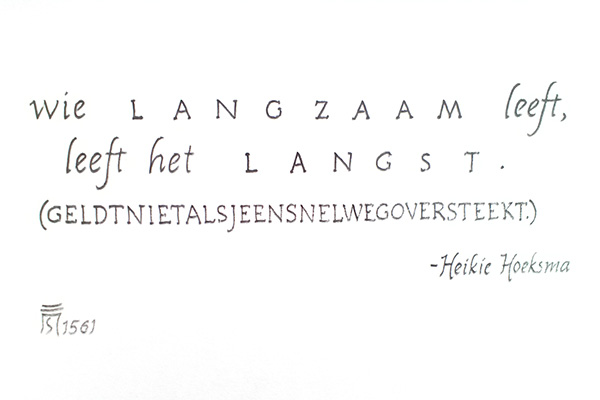 wie LANGZAAM leeft,
leeft het LANGST.
(GELDTNIETALSJEENSNELWEGOVERSTEEKT.)
-Heikie Hoeksma
1561